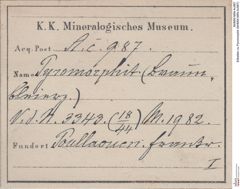 K.K. Mineralogisches Museum.
Acq. Post A.c. 987.
Name Pyromorphit (Braun-
bleierz.)
V.d.N. 3343. (18/44) M. 1982.
Fundort Poullaouen. Frankr.
I